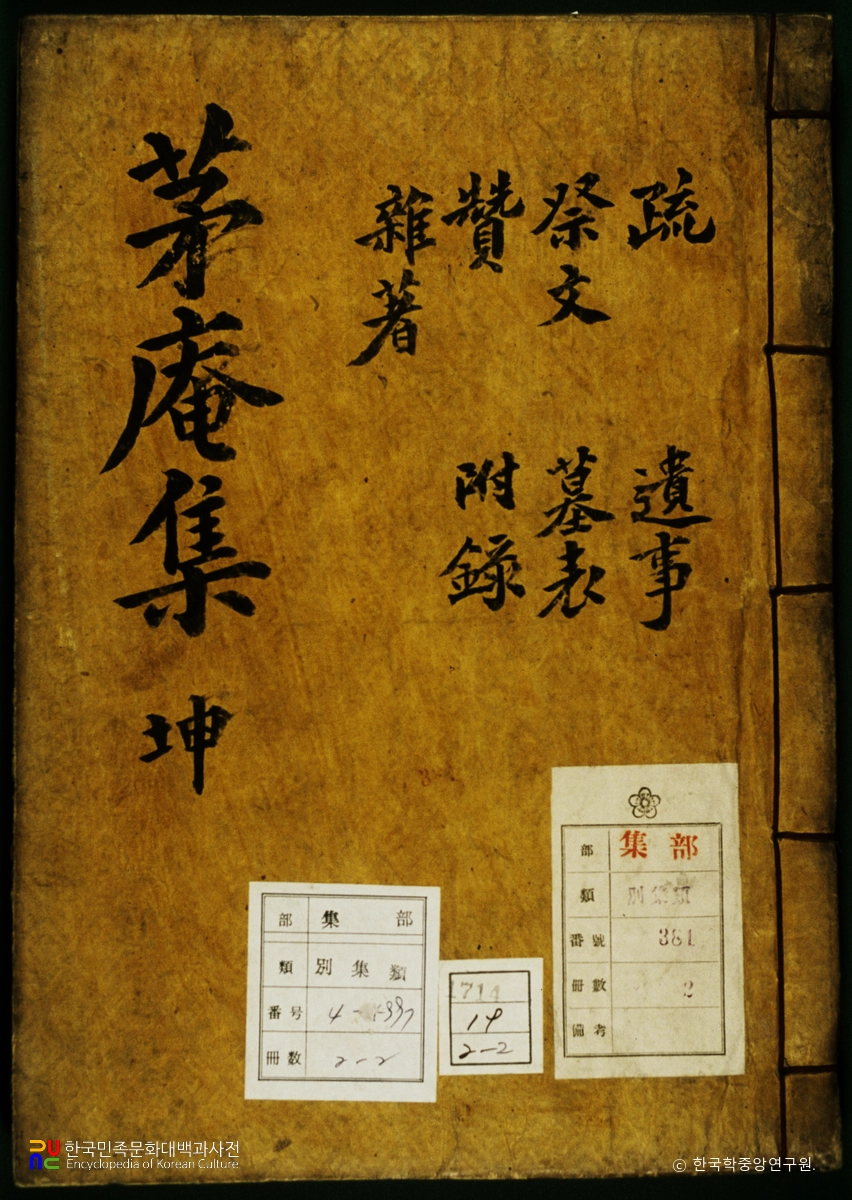 茅庵集 坤
疏
祭文
贊
雜著
遺事
墓表
附錄
部 集部
類 別集類
番号 4-
冊數 2-2
1714
19
2-2
部 集部
類 別集類
番號 381
冊數 2
備考
한국민족문화대백과사전
Encyclopedia of Korean Culture
© 한국학중앙연구원.